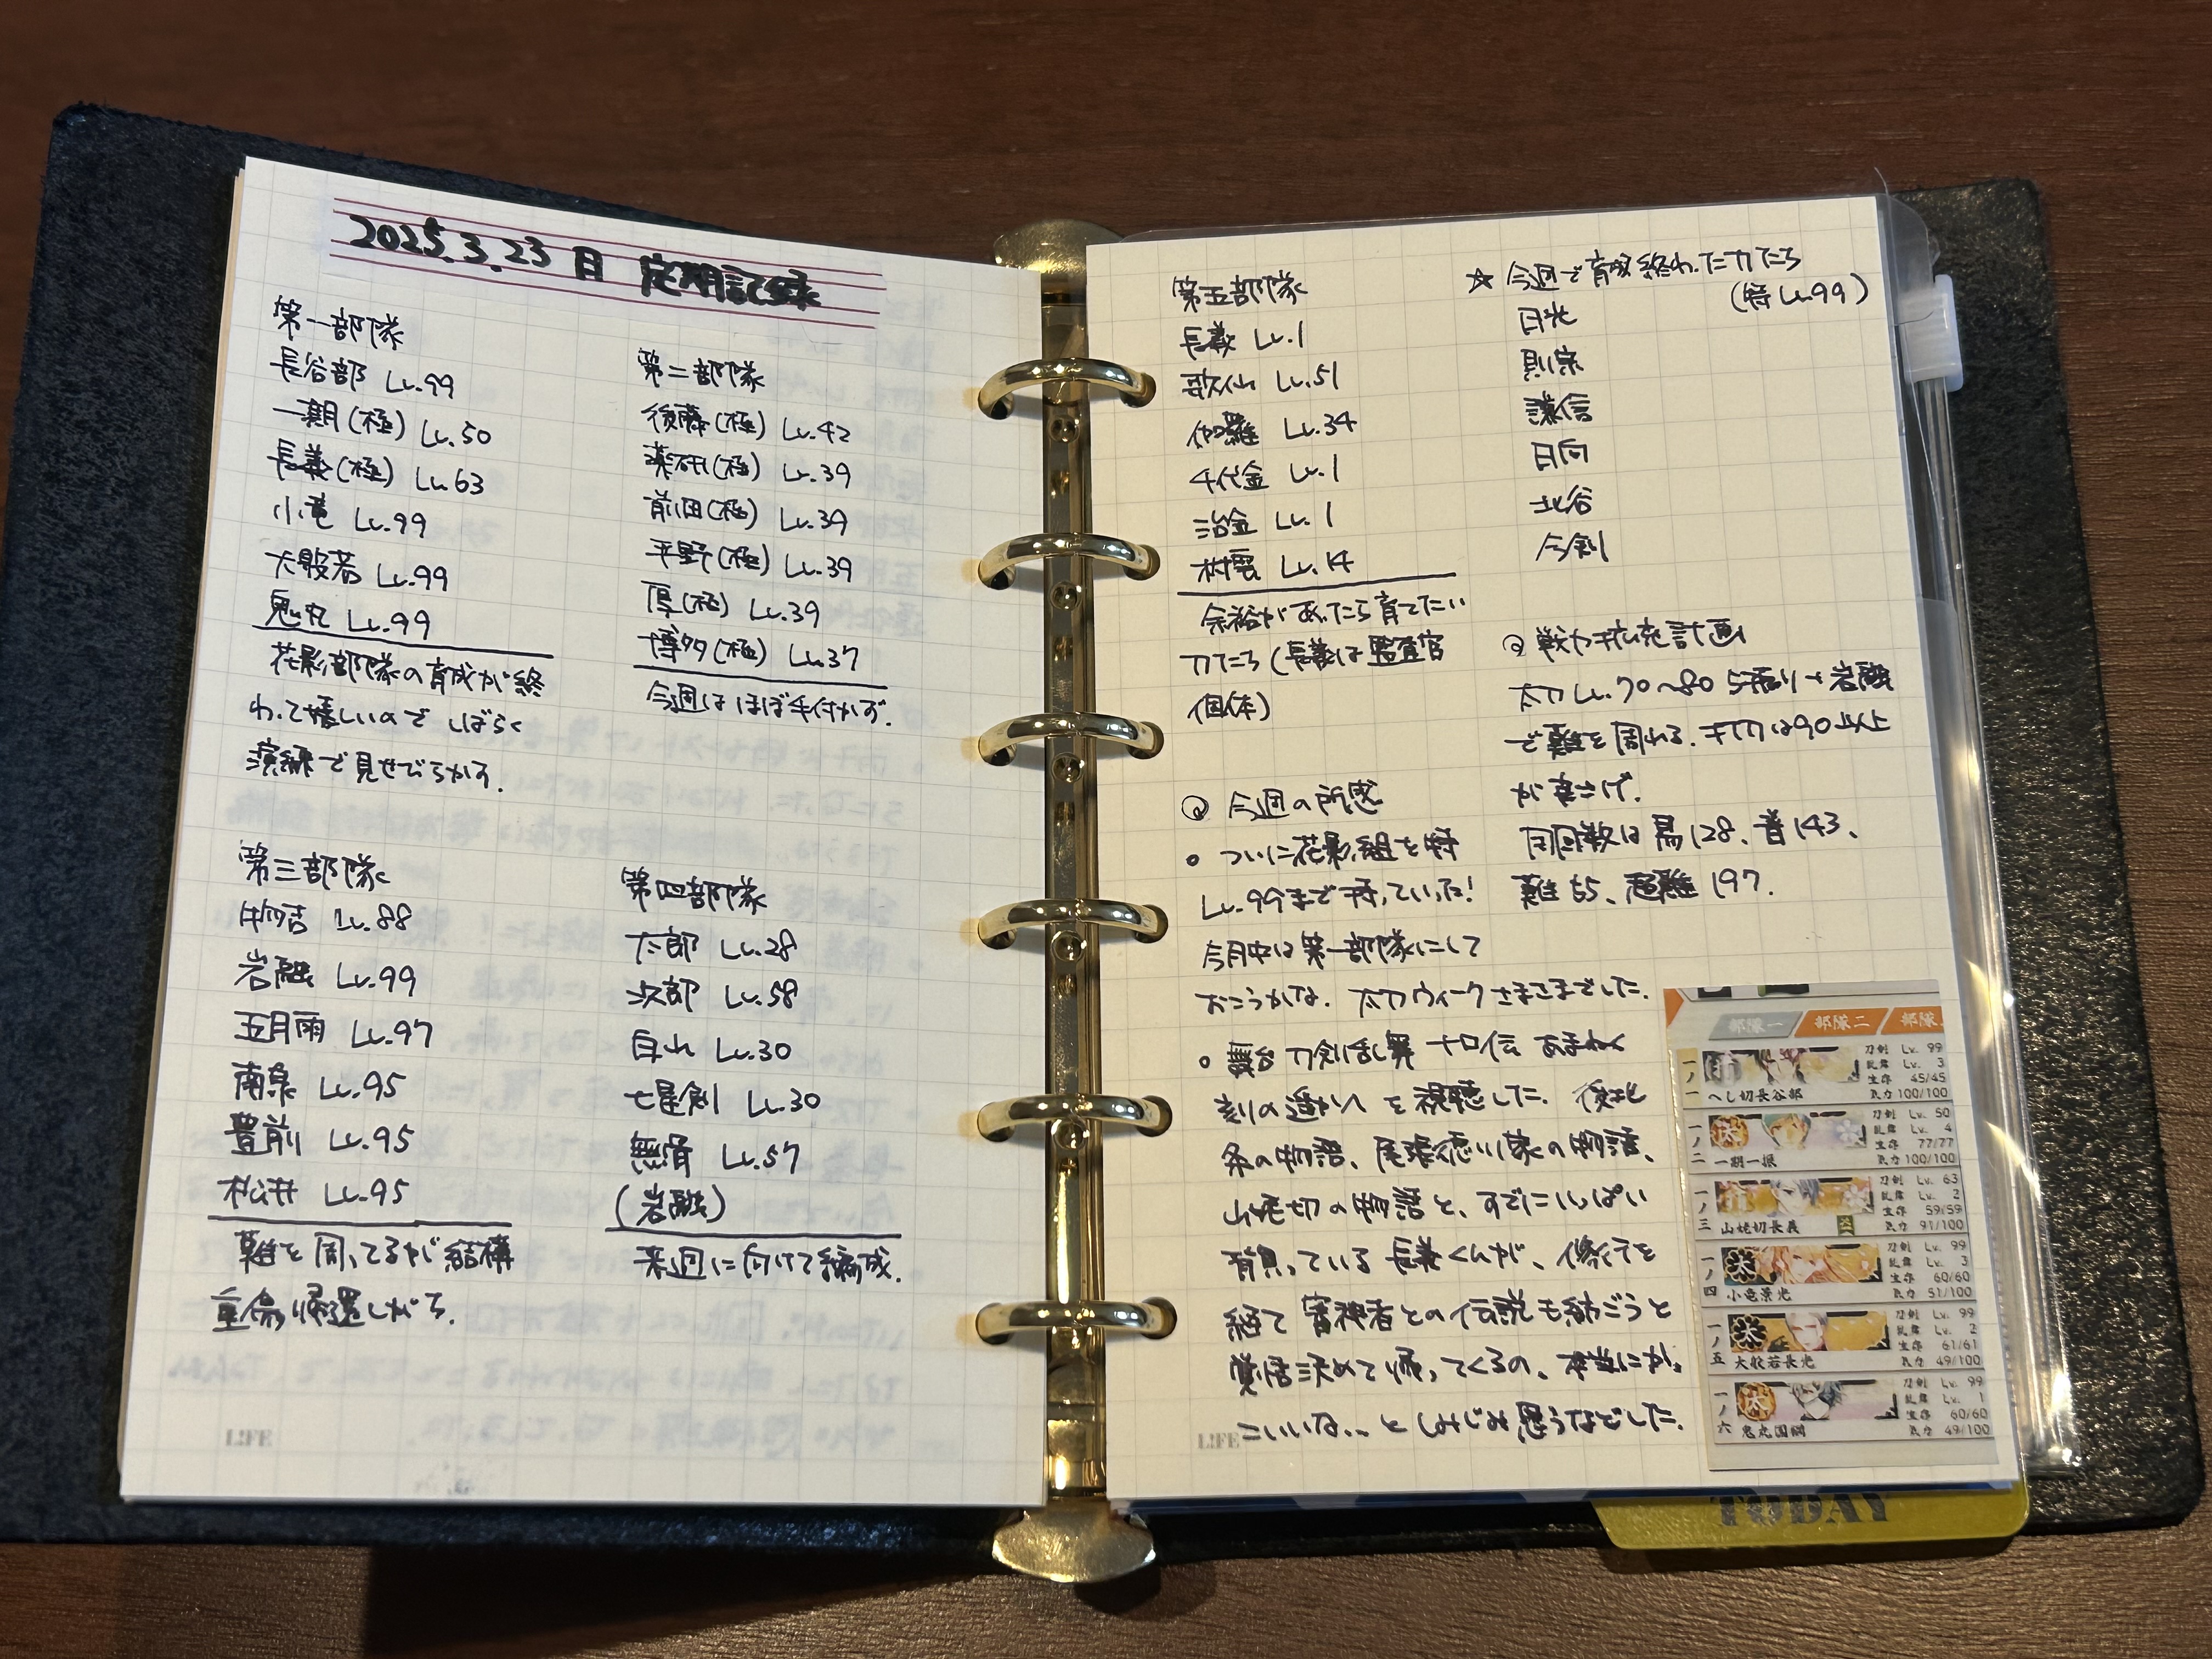 2025.3.23 日 定期記録
第一部隊
長谷部 Lv.99
一期(極) Lv.50
長義(極) Lv.63
小竜 Lv.99
大般若 Lv.99
鬼丸 Lv.99
花影部隊の育成が終
わって嬉しいので しばらく
演練で見せびらかす.
第二部隊
後藤(極) Lv.42
薬研(極) Lv.39
前田(極) Lv.39
平野(極) Lv.39
厚(極) Lv.39
博多(極) Lv.37
今週は ほぼ手付かず.
第三部隊
物吉 Lv.88
岩融 Lv.99
五月雨 Lv.97
南泉 Lv.95
豊前 Lv.95
松井 Lv.95
難を周ってるが結構
重傷帰還しがち.
第四部隊
太郎 Lv.28
次郎 Lv.58
白山 Lv.30
七星剣 Lv.30
無骨 Lv.57
(岩融)
来週に向けて編成.
LIFE
第五部隊
長義 Lv.1
歌仙 Lv.51
伽羅 Lv.34
千代金 Lv.1
治金 Lv.1
村雲 Lv.14
余裕があったら育てたい
刀たち (長義は監査官
個体)
◎ 今週の所感
○ ついに花影組を特
Lv.99まで持っていった!
今月中は第一部隊にして
おこうかな. 太刀ウィークさまさまでした.
○ 舞台 刀剣乱舞 十口伝 あまねく
刻の遥かへ を視聴した. 後北
条の物語、尾張徳川家の物語、
山姥切の物語と、すでにいっぱい
背負っている 長義くんが、修行を
経て 審神者との伝説も紡ごうと
覚悟決めて帰ってくるの、本当にかっ
こいいな… と しみじみ思うなどした.
☆ 今週で育成終わった刀たち
(特Lv.99)
日光
則宗
謙信
日向
北谷
今剣
◎ 戦力拡充計画
太刀 Lv.70~80 5振り+岩融
で難を周れる. 打刀は90以上
が良さげ.
周回数は 易128、普143、
難55、超難197.
部隊一 部隊二 部隊
一ノ一 へし切長谷部
刀剣 Lv. 99
乱舞 Lv. 3
生存 45/45
気力 100/100
一ノ二 一期一振
刀剣 Lv. 50
乱舞 Lv. 4
生存 77/77
気力 100/100
一ノ三 山姥切長義
刀剣 Lv. 63
乱舞 Lv. 2
生存 59/59
気力 91/100
一ノ四 小竜景光
刀剣 Lv. 99
乱舞 Lv. 3
生存 60/60
気力 51/100
一ノ五 大般若長光
刀剣 Lv. 99
乱舞 Lv. 2
生存 61/61
気力 49/100
一ノ六 鬼丸国綱
刀剣 Lv. 99
乱舞 Lv. 1
生存 60/60
気力 49/100
LIFE
TODAY